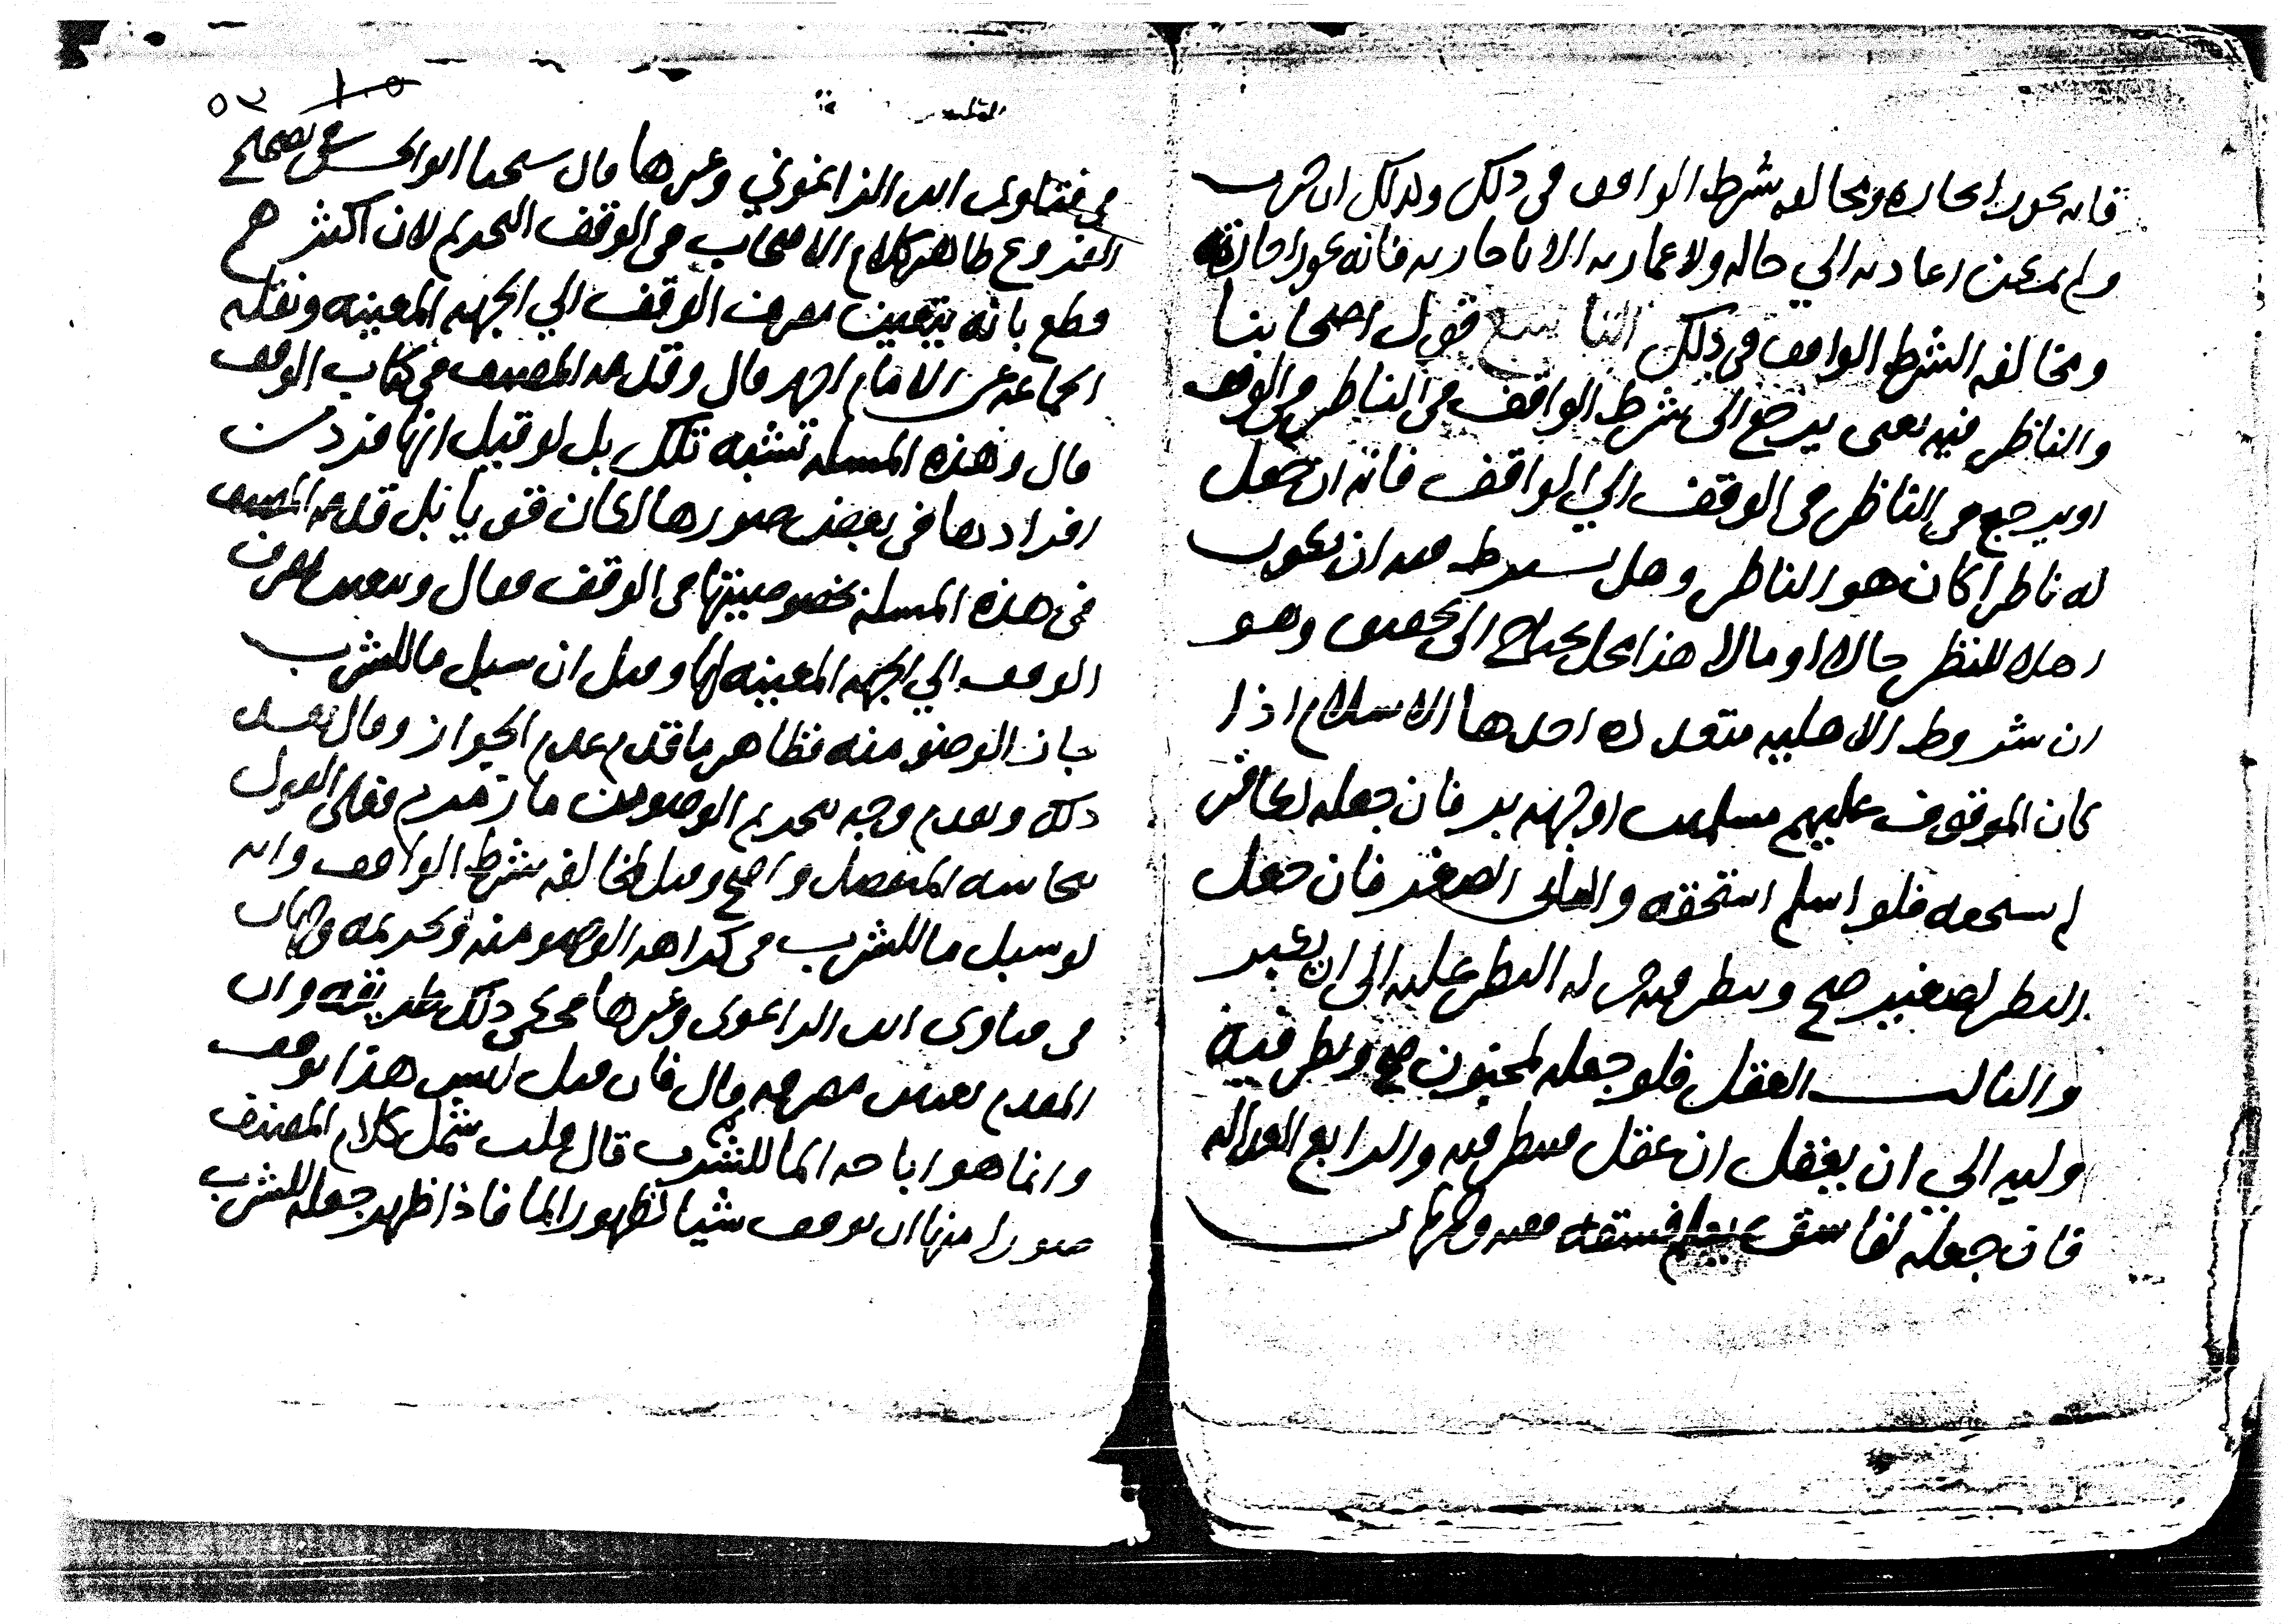 فانه يجوز اجارة ومخالفه شرط الواقف في ذلك وكذلك ان خرب
ولم يمكن اعادته الي حاله ولا عمارته الا باجارته فانه يجوز اجارته
ومخالفه الشرط الواقف في ذلك التاسع قول اصحابنا
والناظر فيه يعني يرجع الى شرط الواقف في الناظر في الوقف
او يرجع في الناظر في الوقف الي الواقف فانه ان جعل
له ناظرا كان هو الناظر وهل يشترط فيه ان يكون
اهلا للنظر حالا او مالا هذا محل يحتاج الى تحقيق وهو
ان شروط الاهليه متعدده احدها الاسلام اذا
كان الموقوف عليهم مسلمين او جهه بر فان جعله لكافر
لم يستحقه فلو اسلم استحقه والثاني الصغر فان جعل
النظر لصغير صح وينظر فيه من له النظر عليه الى ان يكبر
والثالث العقل فلو جعله لمجنون صح وينظر فيه
وليه الي ان يعقل ان عقل فينظر فيه والرابع العداله
فان جعله لفاسق فسقه ففيه وجهان
٥٣ ١٠٥
في فتاوى ابن الزاغوني وغيرها قال شيخنا ابو الحسن في تصحيح
الفروع ظاهر كلام الاصحاب في الوقف التحريم لان اكثرهم
قطع بانه يتعين مصرف الوقف الي الجهه المعينه ونقله
الجماعه عن الامام احمد قال وقدمه المصنف في كتاب الوقف
قال وهذه المسله تشبه تلك بل لو قيل انها فرد من
افرادها في بعض صورها لكان قويا بل قدم المصنف
في هذه المسلة بخصوصيتها في الوقف فقال ويتعين مصرف
الوقف الي الجهه المعينه لها وقيل ان سبل ما للشرب
جاز الوضو منه فظاهر ما قدم عدم الجواز وقال بعد
ذلك وتقدم وجه تحريم الوضو من ما زمزم فعلى القول
بنجاسه المنفصل واضح وقيل لمخالفه شرط الواقف وانه
لو سبل ما للشرب في كراهه الوضو منه وتحريمه وجهان
في فتاوى ابن الزاغوني وغيرها فحكى ذلك طريقه وان
المقدم تعيين مصرفه قال فان قيل ليس هذا بوقف
وانما هو اباحه الما للشرب قال قلت شمل كلام المصنف
صورا منها ان يوقف شيا لظهور الما فاذا ظهر جعله للشرب